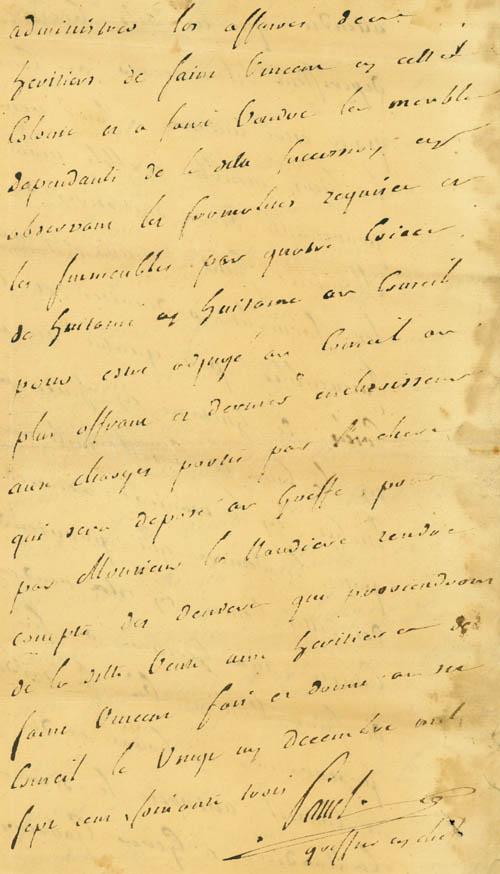 administrer les affaires des
heritiers de Saint Vincent en cette
Colonie et a faire Vendre les meubles
dependants de la ditte succession, en
observant les formalités requises et
les Immeubles par quatre Criees
de huitaine en huitaine au Conseil
pour estre adjugé au Conseil au
plus offrant et dernier encherisseur
aux charges portée par
qui sera deposé au Greffe, pour
par Monsieur la Maudiere rendre
compte des deniers qui proviendront
de la ditte Vente aux heritiers de
Saint Vincent fait et donné au
Conseil le Vingt un decembre mil
sept cent soixante trois
greffier en chef